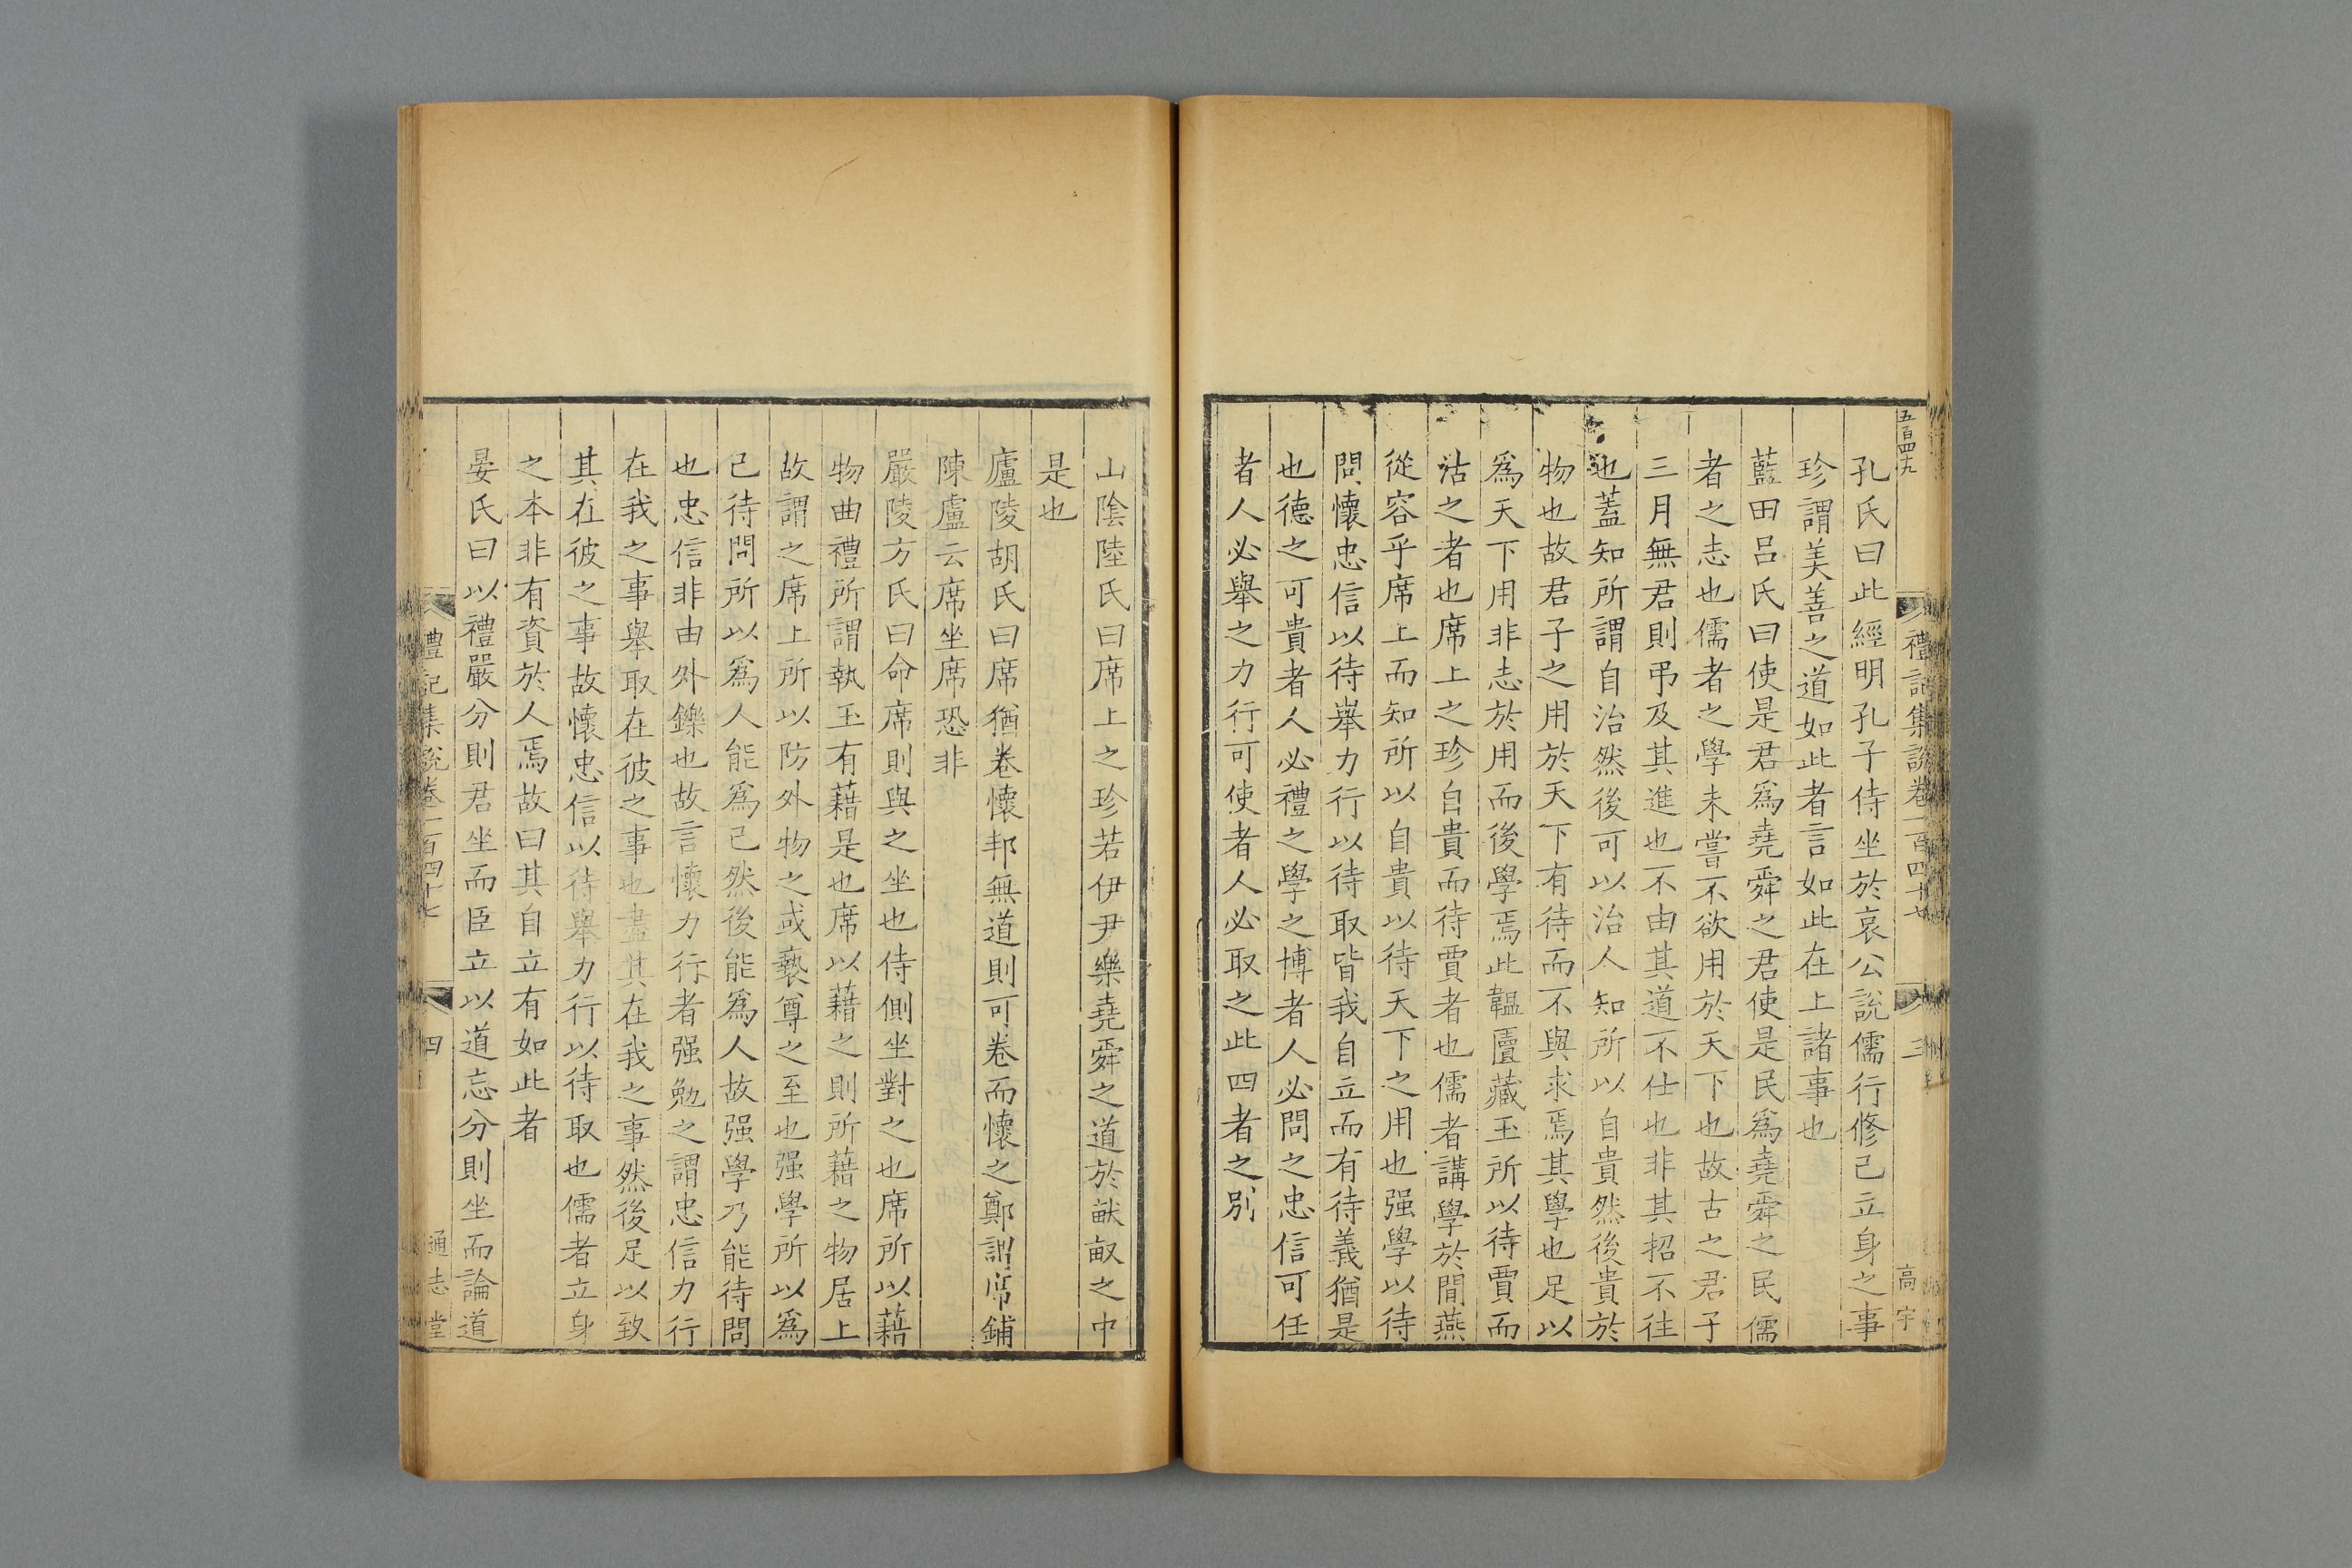 五百四十九
禮記集說卷一百四十七 三 高宇
孔氏曰此經明孔子侍坐於哀公說儒行修己立身之事
珍謂美善之道如此者言如此在上諸事也
藍田呂氏曰使是君爲堯舜之君使是民爲堯舜之民儒
者之志也儒者之學未嘗不欲用於天下也故古之君子
三月無君則弔及其進也不由其道不仕也非其招不往
也蓋知所謂自治然後可以治人知所以自貴然後貴於
物也故君子之用於天下有待而不與求焉其學也足以
爲天下用非志於用而後學焉此韞匵藏玉所以待賈而
沽之者也席上之珍自貴而待賈者也儒者講學於閒燕
從容乎席上而知所以自貴以待天下之用也强學以待
問懷忠信以待舉力行以待取皆我自立而有待義猶是
也德之可貴者人必禮之學之博者人必問之忠信可任
者人必舉之力行可使者人必取之此四者之別
山陰陸氏曰席上之珍若伊尹樂堯舜之道於畎畝之中
是也
廬陵胡氏曰席猶卷懷邦無道則可卷而懷之鄭謂席鋪
陳盧云席坐席恐非
嚴陵方氏曰命席則與之坐也侍側坐對之也席所以藉
物曲禮所謂執玉有藉是也席以藉之則所藉之物居上
故謂之席上所以防外物之或褻尊之至也强學所以爲
己待問所以爲人能爲己然後能爲人故强學乃能待問
也忠信非由外鑠也故言懷力行者强勉之謂忠信力行
在我之事舉取在彼之事也盡其在我之事然後足以致
其在彼之事故懷忠信以待舉力行以待取也儒者立身
之本非有資於人焉故曰其自立有如此者
晏氏曰以禮嚴分則君坐而臣立以道忘分則坐而論道
禮記集說卷一百四十七 四 通志堂